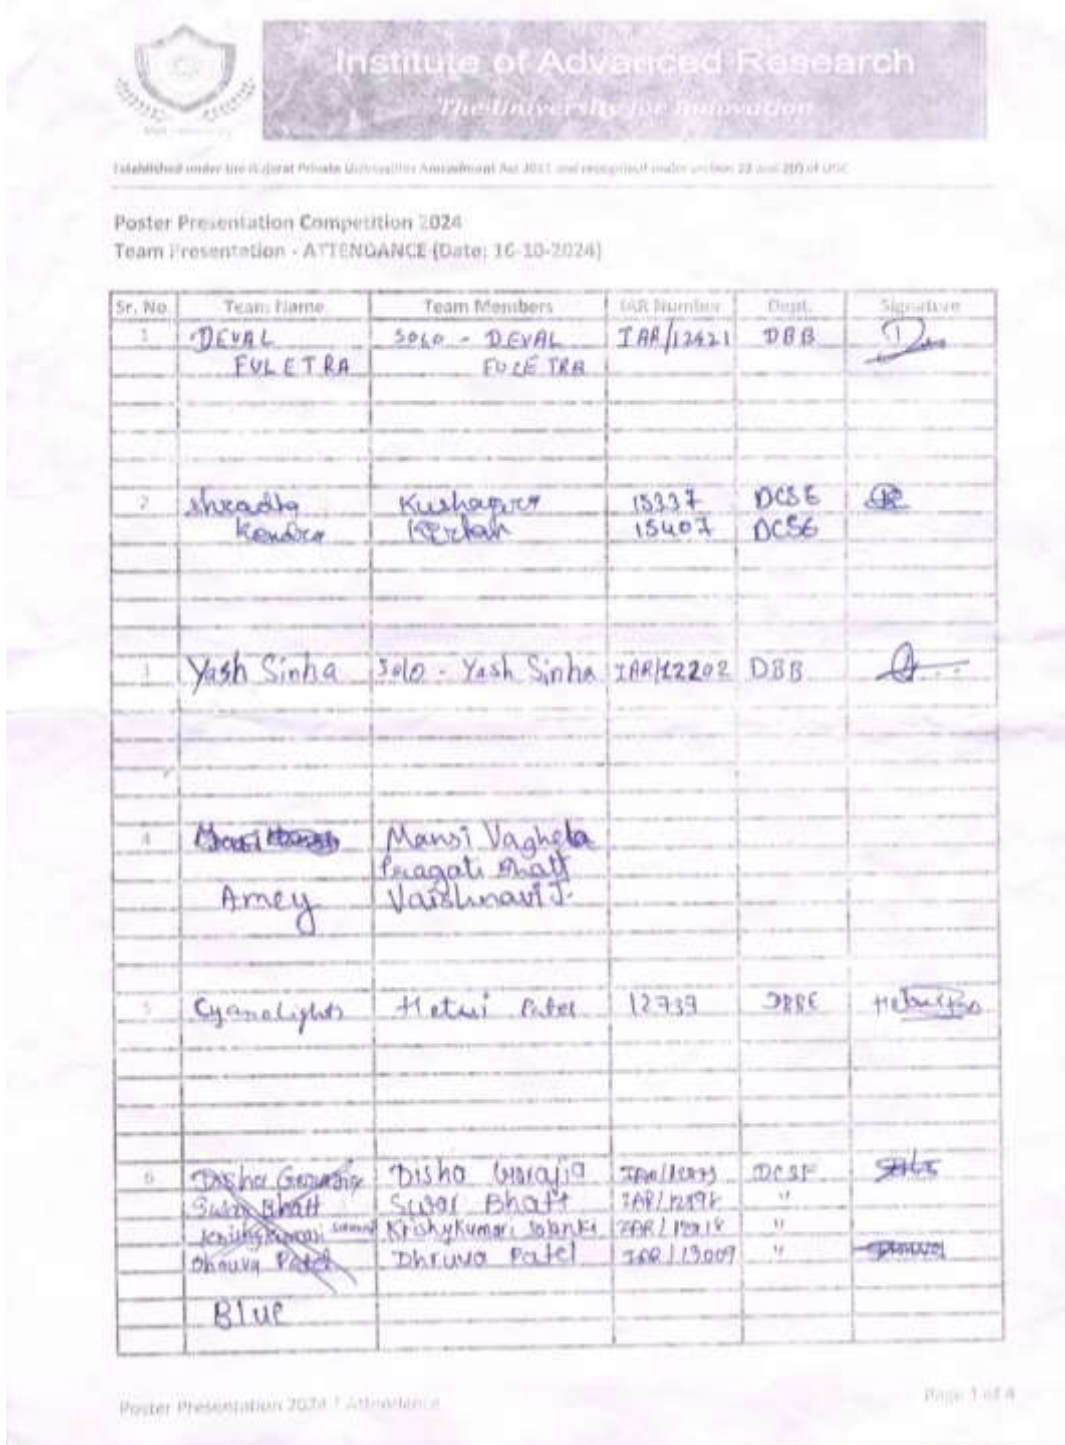 Institute of Advanced Research
The University for Innovation
Established under the Gujarat Private Universities Amendment Act 2011 and recognised under section 22 and 2(f) of UGC
Poster Presentation Competition 2024
Team Presentation - ATTENDANCE (Date: 16-10-2024)
Sr. No Team Name Team Members IAR Number Dept. Signature
1 DEVAL SOLO - DEVAL IAR/12421 DBB
FULETRA FULETRA
2 Kushagra 15337 DCSE
15407 DCSE
3 Yash Sinha Solo - Yash Sinha IAR/12202 DBB
4 Mansi Vaghela
Pragati Bhatt
Amey Vaishnavi J.
5 Cyanolights Hetvi Patel 12739
6 Disha Disha DCSE
Swar Bhatt Swar Bhatt "
Krishykumari Solanki "
Dhruva Patel Dhruva Patel IAR/13009 "
Blue
Poster Presentation 2024 / Attendance
Page 1 of 4